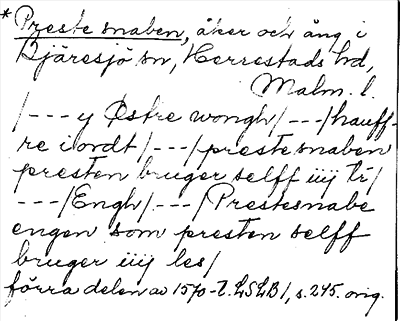 * Preste snaben, åker och äng i
Bjäresjö sn, Herrestads hd,
Malm. l.
/---y Østre wongh/---/hauff-
re i ordt/---/prestesnaben
presten bruger selff iiij
---/Engh/---/Prestesnabe
engen som presten selff
bruger iiij les/
förra delen av 1570-t. LSLB/, s. 245. orig.